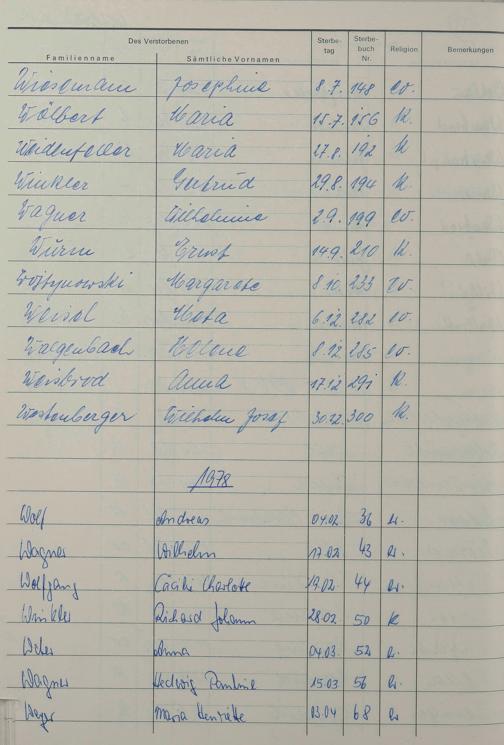 Des Verstorbenen
Familienname Sämtliche Vornamen Sterbe- tag Sterbe- buch Nr. Religion Bemerkungen
Wiesemann Josephine 8.7. 148 ev.
Wölbert Maria 15.7. 156 k.
Weidenfeller Maria 27.8. 192 k
Winkler Gertrud 29.8. 194 k.
Wagner Wilhelmine 2.9. 199 ev.
Wurm Ernst 14.9. 210 k.
Wojtynowski Margarete 8.10. 233 ev.
Weisel Meta 6.12. 282 ev.
Waegenbach Helene 8.12. 285 ev.
Weisbrod Anna 17.12 291 k.
Westenberger Wilhelm Josef 30.12. 300 k.
1978
Wolf Andreas 04.02. 36 ev.
Wagner Wilhelm 17.02 43 ev.
Wolfgang Cäcilie Charlotte 19.02. 44 ev.
Winkler Richard Johann 28.02 50 k
Weber Anna 04.03. 52 ev.
Wagner Hedwig Pauline 15.03 56 ev.
Maria Henriette 03.04 68 ev